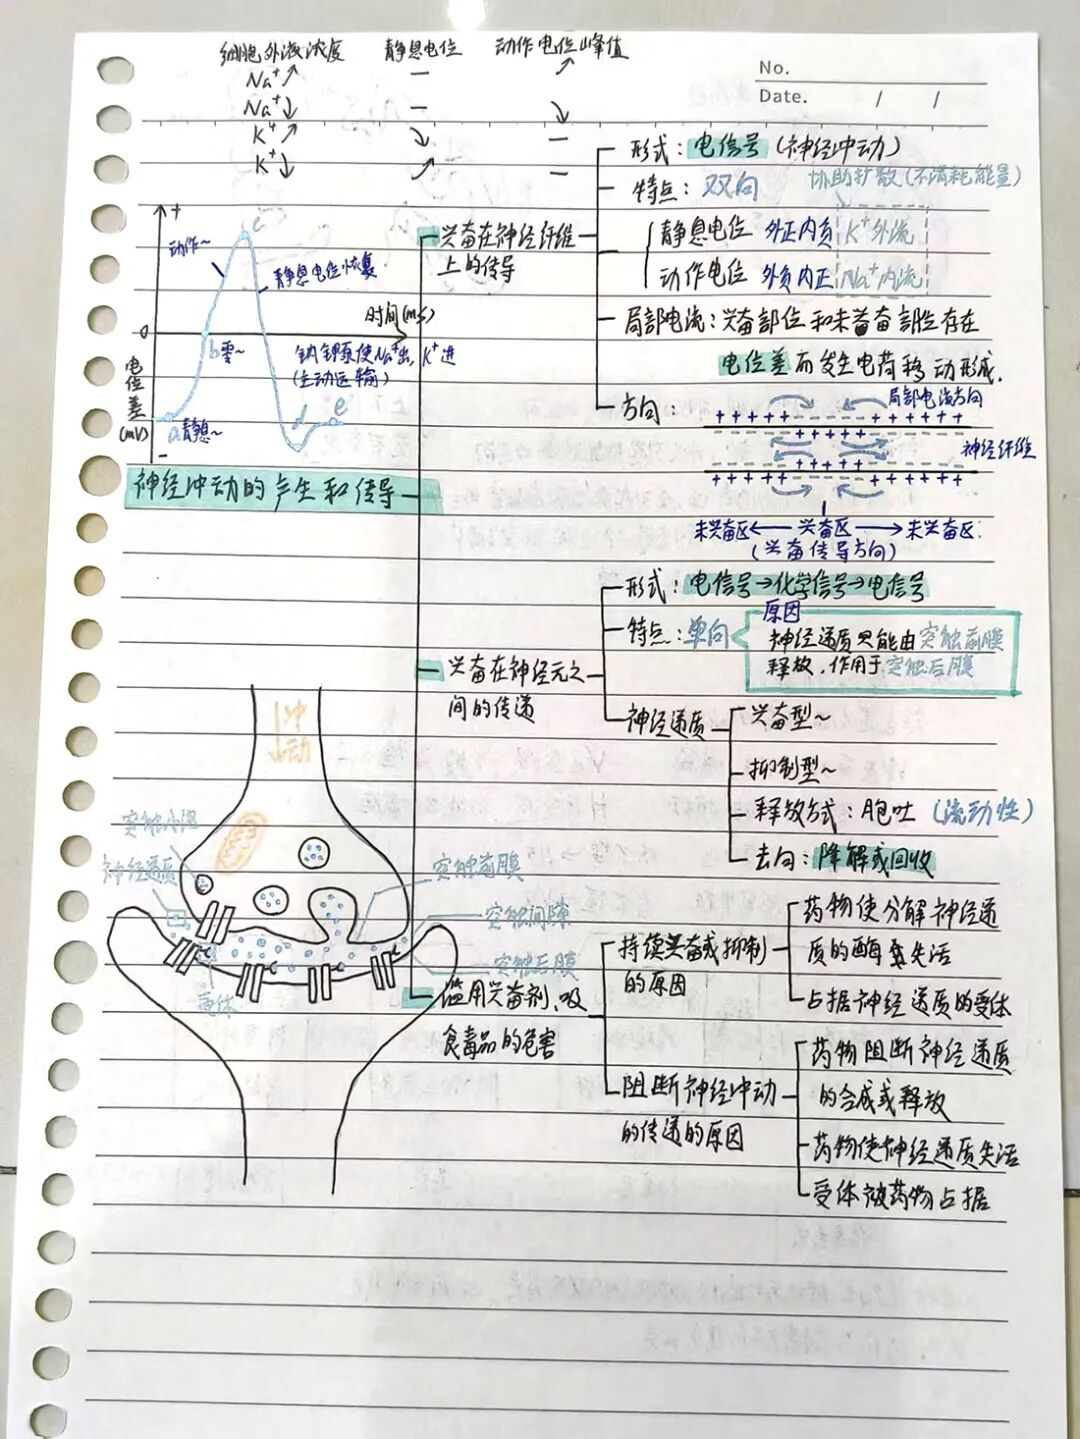 No.
Date. / /
细胞外液浓度 静息电位 动作电位峰值
Na⁺↗ — ↗
Na⁺↓ — ↘
K⁺↗ ↘ —
K⁺↓ ↗ —
+
动作~
c
静息电位恢复
时间(ms)
0
b零~
钠钾泵使Na⁺出，K⁺进
(主动运输)
电位差
(mV)
a静息~
d
e
-
神经冲动的产生和传导
兴奋在神经纤维
上的传导
形式：电信号(神经冲动)
特点：双向
协助扩散(不消耗能量)
静息电位 外正内负 K⁺外流
动作电位 外负内正 Na⁺内流
局部电流：兴奋部位和未兴奋部位存在
电位差而发生电荷移动形成.
方向：
局部电流方向
++++++ ----- +++++++
神经纤维
------ +++++ -------
未兴奋区←兴奋区→未兴奋区
(兴奋传导方向)
兴奋在神经元之
间的传递
形式：电信号→化学信号→电信号
特点：单向
原因
神经递质只能由突触前膜
释放，作用于突触后膜
神经递质
兴奋型~
抑制型~
释放方式：胞吐 (流动性)
去向：降解或回收
冲动
突触小泡
神经递质
突触前膜
突触间隙
突触后膜
受体
滥用兴奋剂、吸
食毒品的危害
持续兴奋或抑制
的原因
药物使分解神经递
质的酶失活
占据神经递质的受体
阻断神经冲动
的传递的原因
药物阻断神经递质
的合成或释放
药物使神经递质失活
受体被药物占据